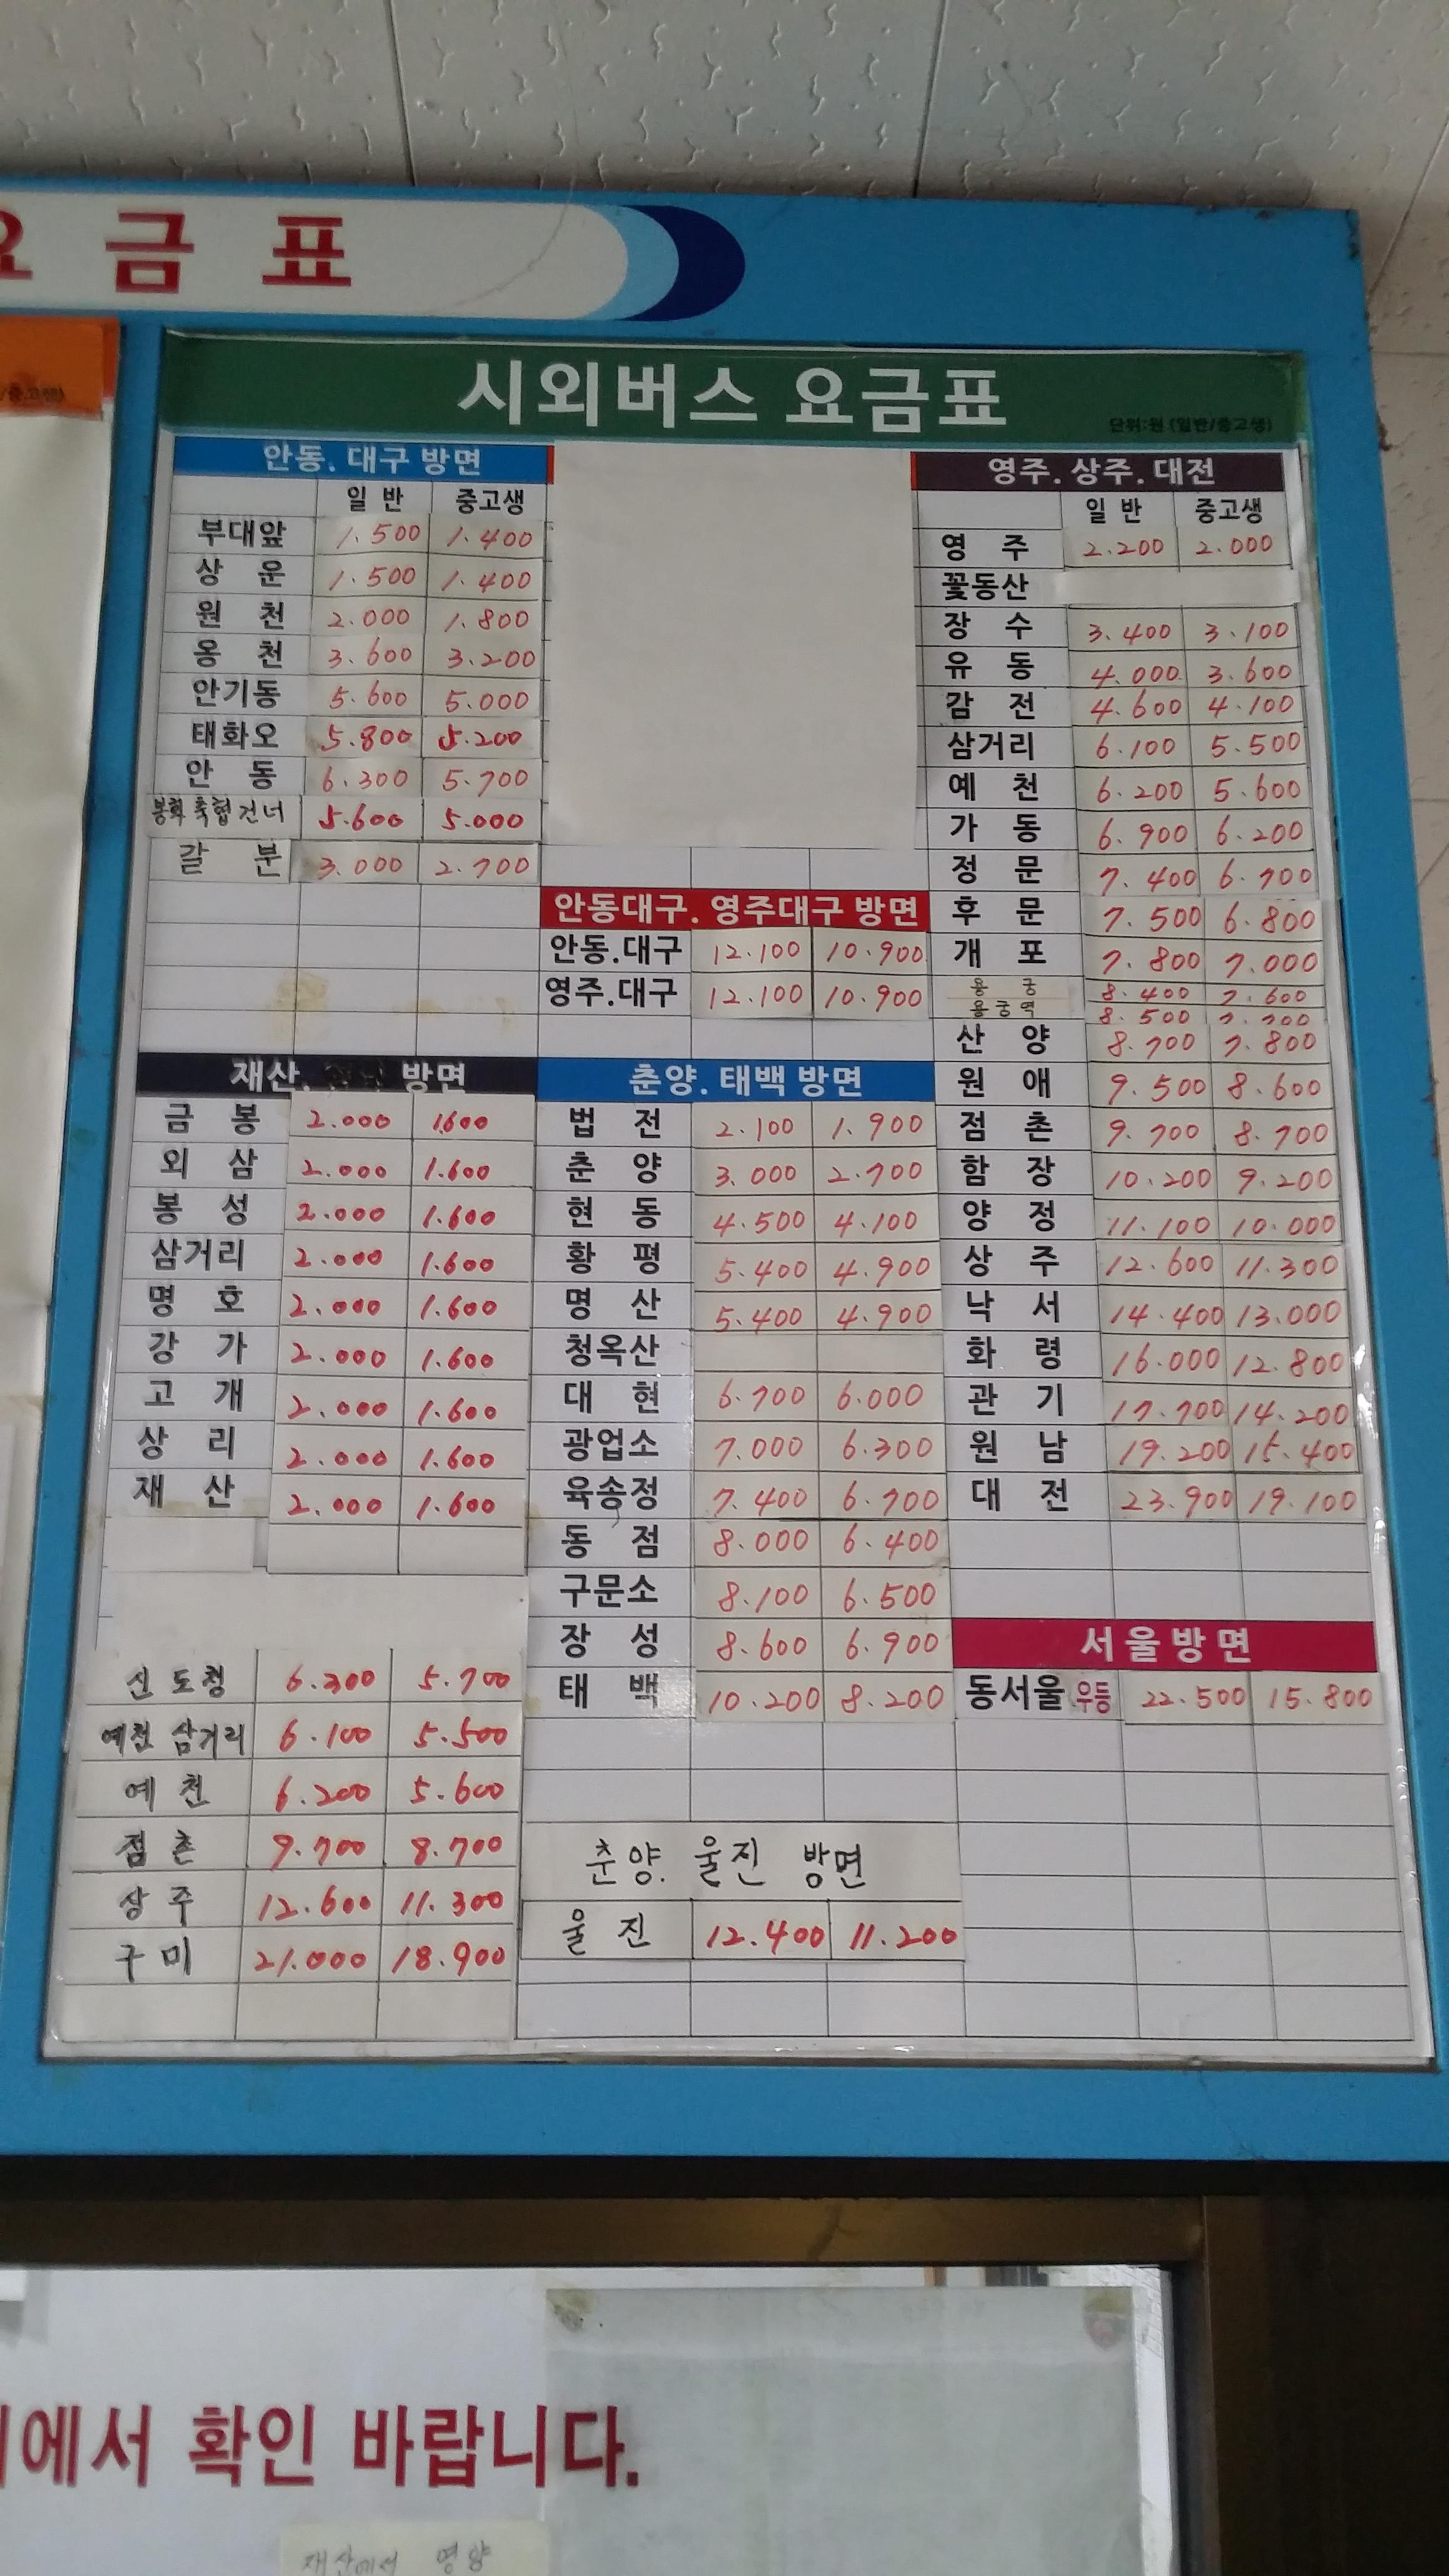 요 금 표
/중고생)
시외버스 요금표
단위:원 (일반/중고생)
안동. 대구 방면
일 반 중고생
부대앞 1.500 1.400
상 운 1.500 1.400
원 천 2.000 1.800
옹 천 3.600 3.200
안기동 5.600 5.000
태화오 5.800 5.200
안 동 6.300 5.700
봉화축협건너 5.600 5.000
갈 분 3.000 2.700
안동대구. 영주대구 방면
안동.대구 12.100 10.900
영주.대구 12.100 10.900
영주. 상주. 대전
일 반 중고생
영 주 2.200 2.000
꽃동산
장 수 3.400 3.100
유 동 4.000 3.600
감 전 4.600 4.100
삼거리 6.100 5.500
예 천 6.200 5.600
가 동 6.900 6.200
정 문 7.400 6.700
후 문 7.500 6.800
개 포 7.800 7.000
용 궁 8.400 7.600
용궁역 8.500 7.700
산 양 8.700 7.800
원 애 9.500 8.600
점 촌 9.700 8.700
함 장 10.200 9.200
양 정 11.100 10.000
상 주 12.600 11.300
낙 서 14.400 13.000
화 령 16.000 12.800
관 기 17.700 14.200
원 남 19.200 15.400
대 전 23.900 19.100
재산. 방면
금 봉 2.000 1.600
외 삼 2.000 1.600
봉 성 2.000 1.600
삼거리 2.000 1.600
명 호 2.000 1.600
강 가 2.000 1.600
고 개 2.000 1.600
상 리 2.000 1.600
재 산 2.000 1.600
신도청 6.300 5.700
예천 삼거리 6.100 5.500
예 천 6.200 5.600
점 촌 9.700 8.700
상 주 12.600 11.300
구 미 21.000 18.900
춘양. 태백 방면
법 전 2.100 1.900
춘 양 3.000 2.700
현 동 4.500 4.100
황 평 5.400 4.900
명 산 5.400 4.900
청옥산
대 현 6.700 6.000
광업소 7.000 6.300
육송정 7.400 6.700
동 점 8.000 6.400
구문소 8.100 6.500
장 성 8.600 6.900
태 백 10.200 8.200
춘양. 울진 방면
울 진 12.400 11.200
서울방면
동서울 우등 22.500 15.800
에서 확인 바랍니다.
재산에서 영양